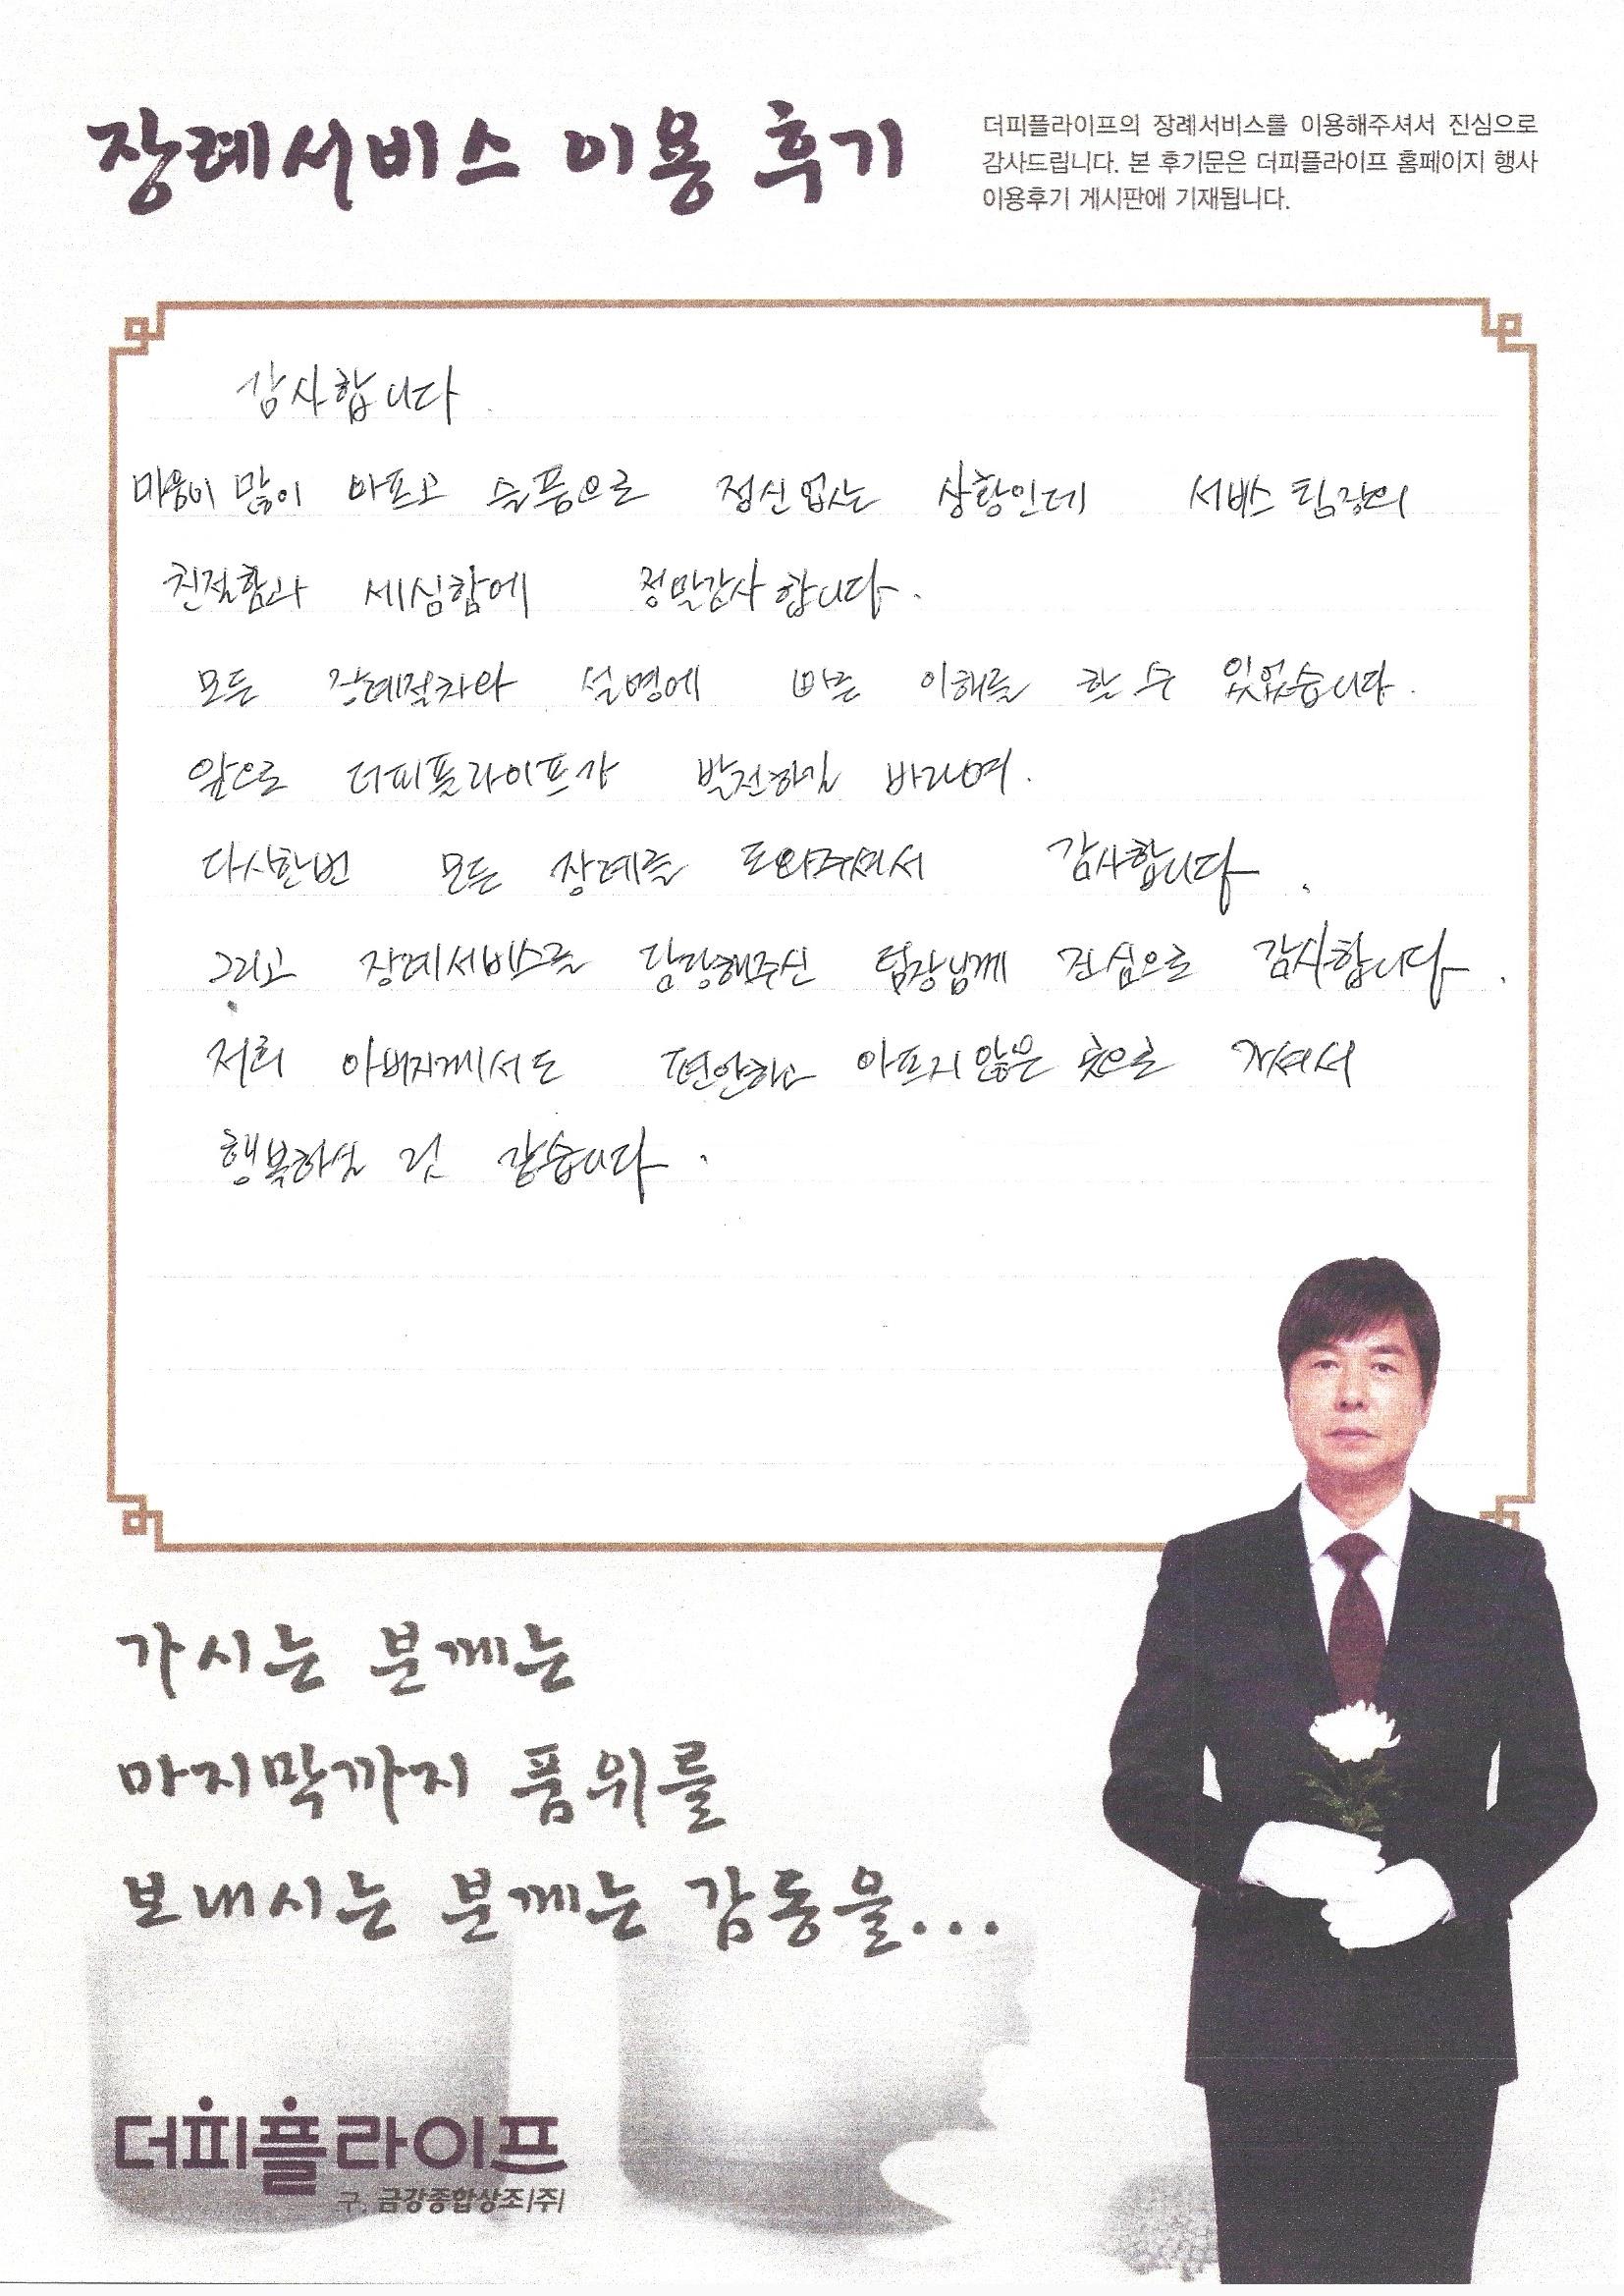 장례서비스 이용 후기
더피플라이프의 장례서비스를 이용해주셔서 진심으로
감사드립니다. 본 후기문은 더피플라이프 홈페이지 행사
이용후기 게시판에 기재됩니다.
감사합니다.
마음이 많이 아프고 슬픔으로 정신없는 상황인데 서비스 팀장의
친절함과 세심함에 정말감사 합니다.
모든 장례절차와 설명에 빠른 이해를 할 수 있었습니다.
앞으로 더피플라이프가 발전하길 바라며.
다시한번 모든 장례를 도와주셔서 감사합니다.
그리고 장례서비스를 담당해주신 팀장님께 진심으로 감사합니다.
저희 아버지께서도 편안하고 아프지않은 곳으로 가셔서
행복하실 것 같습니다.
가시는 분께는
마지막까지 품위를
보내시는 분께는 감동을...
더피플라이프
구. 금강종합상조(주)